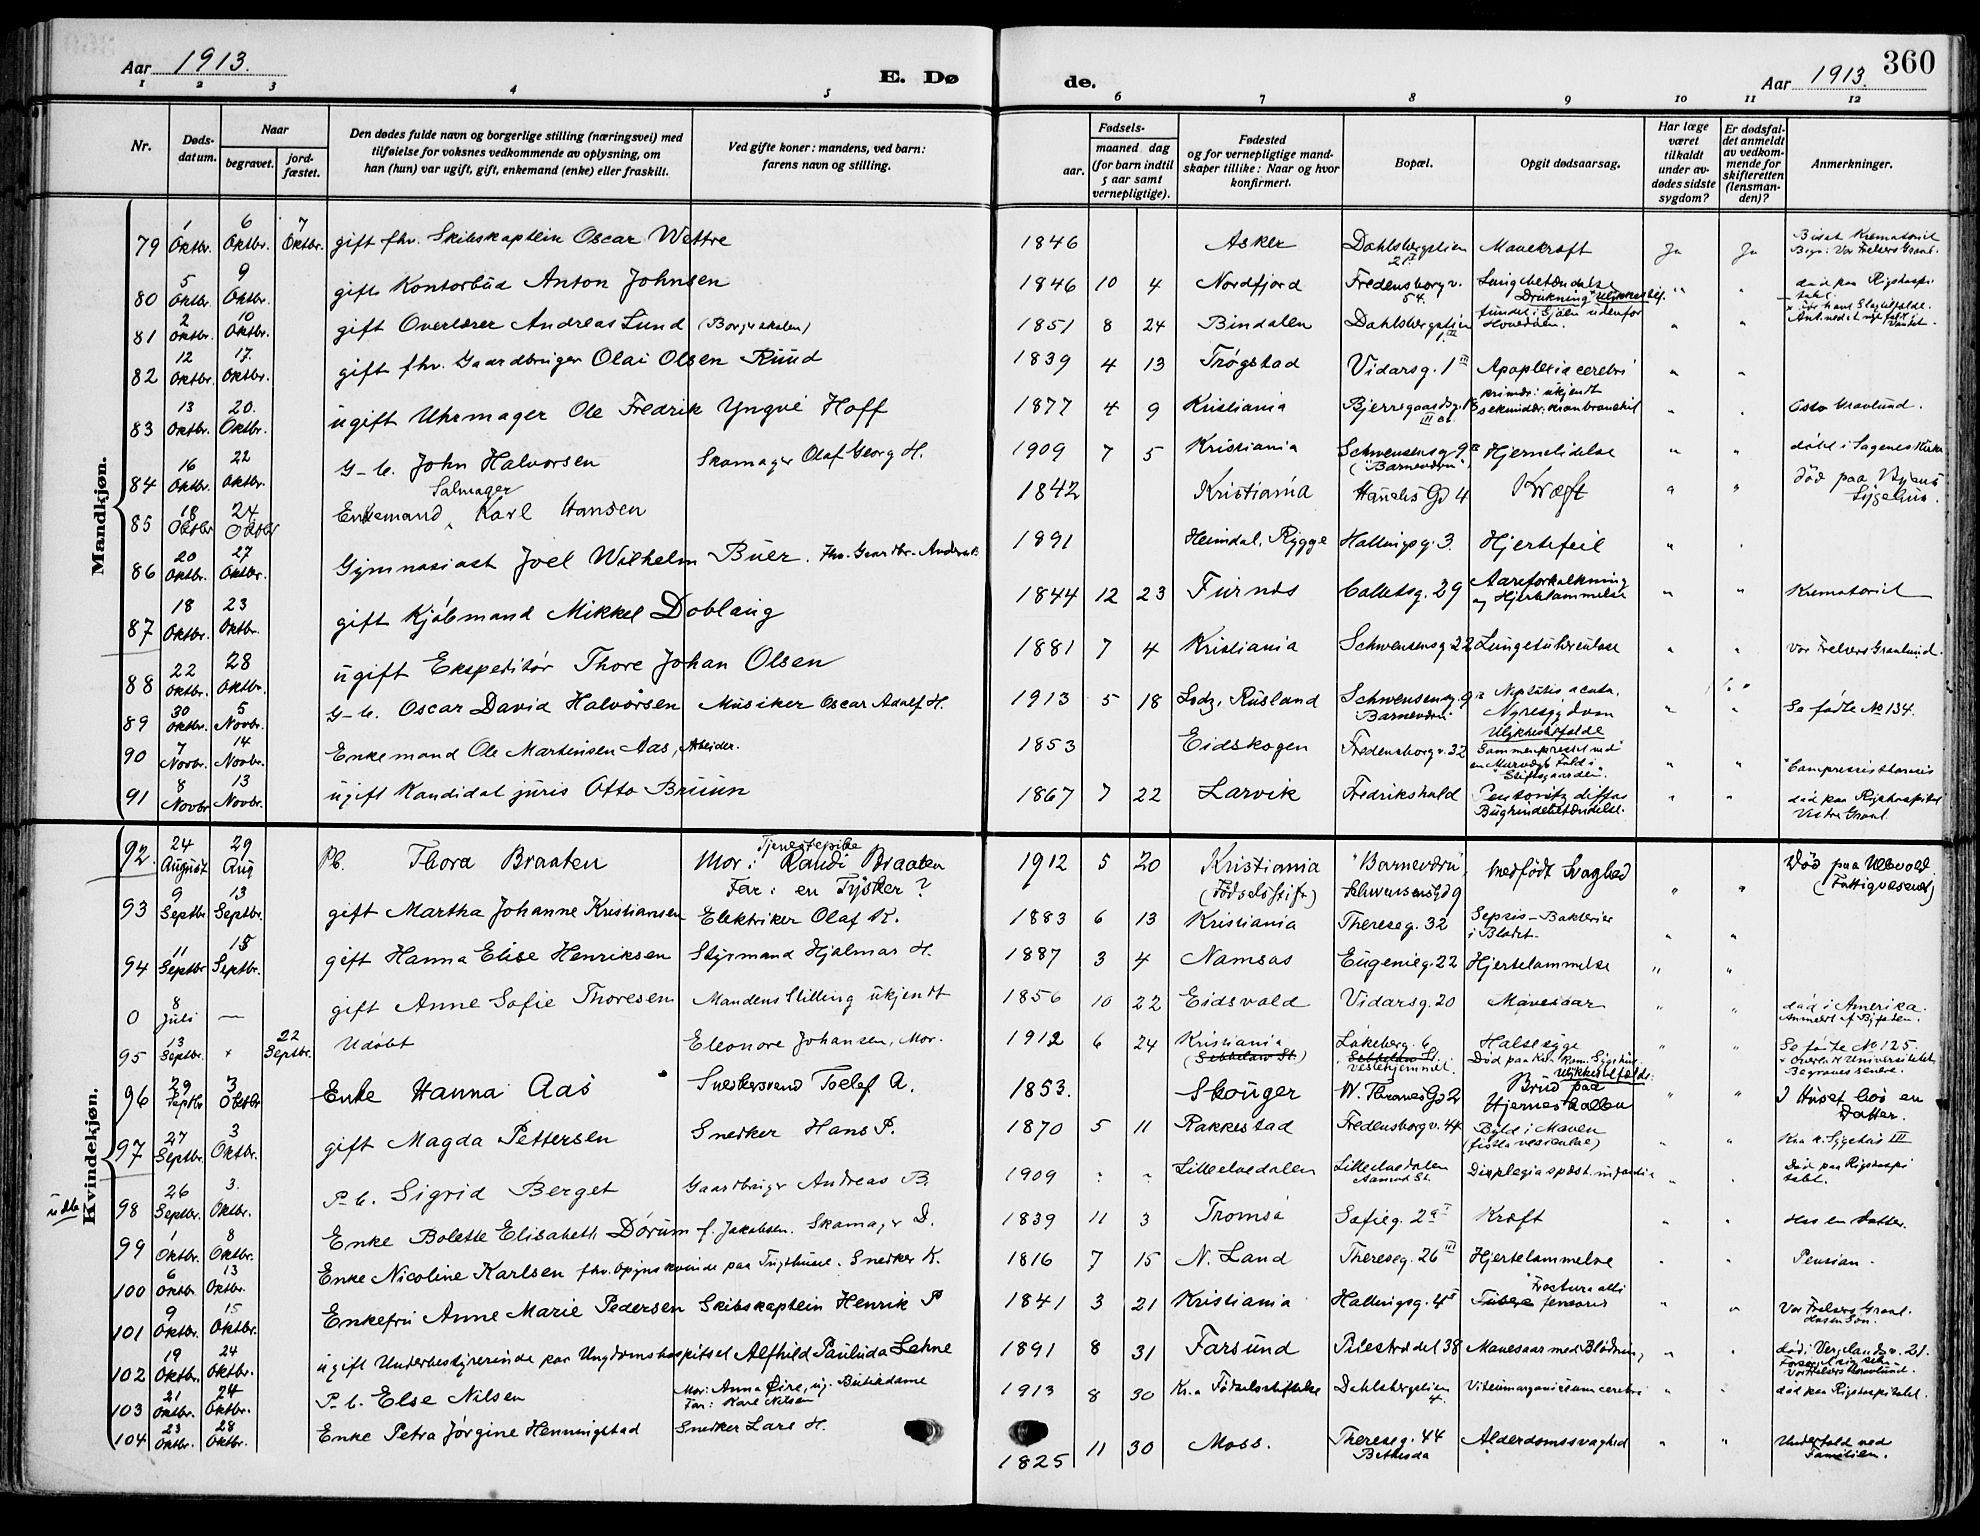 Aar 1913.
E. Dø
de.
Aar 1913.
360
1 2 3 4 5 6 7 8 9 10 11 12
Nr.
Døds-
datum.
Naar
begravet.
jord-
fæstet.
Den dødes fulde navn og borgerlige stilling (næringsvei) med
tilføielse for voksnes vedkommende av oplysning, om
han (hun) var ugift, gift, enkemand (enke) eller fraskilt.
Ved gifte koner: mandens, ved barn:
farens navn og stilling.
Fødsels-
aar.
maaned dag
(for barn indtil
5 aar samt
vernepligtige).
Fødested
og for vernepligtige mand-
skaper tillike: Naar og hvor
konfirmert.
Bopæl.
Opgit dødsaarsag.
Har læge
været
tilkaldt
under av-
dødes sidste
sygdom?
Er dødsfal-
det anmeldt
av vedkom-
mende for
skifteretten
(lensman-
den)?
Anmerkninger.
Mandkjøn.
79 1 Oktbr. 6 Oktbr. 7 Oktbr. gift fhv. Skibskaptein Oscar Wettre 1846 Asker Dahlsbergstien 21 II Mavekræft Ja Ja Bisat Krematoriet Begr: Vor Frelsers Gravl.
80 5 Oktbr. 9 Oktbr. gift Kontorbud Anton Johnsen 1846 10 4 Nordfjord Fredensborgv. 54. Lungebetændelse " " død paa Rigshospitalet.
81 2 Oktbr. 10 Oktbr. gift Overlærer Andreas Lund (Borgerskolen) 1851 8 24 Bindalen Dahlsbergstien 1 III Drukning Ulykkestilf. fundet i Sjøen udenfor Hovedøen. " "
82 12 Oktbr. 17. Oktbr. gift fhv. Gaardbruger Olai Olsen Ruud 1839 4 13 Trøgstad Vidarsg. 1 III Apoplexia cerebri " "
83 13 Oktbr. 20. Oktbr. ugift Uhrmager Ole Fredrik Yngve Hoff 1877 4 9 Kristiania Bjerregaardsg. primær: ukjendt " " Oslo Gravlund.
84 16 Oktbr. 22 Oktbr. G-b. John Halvorsen Skomager Olaf Georg H. 1909 7 5 Kristiania Schwensensg. 9 ("Barnevern") Hjernelidelse " " døbt i Sagenes Kirke
85 18 Oktbr 24 Oktbr Enkemand Salmager Karl Hansen 1842 Kristiania Hauchs Gd 4 Kræft " " Død paa Byens Sygehus.
86 20 Oktbr. 27 Oktbr. Gymnasiast Joel Wilhelm Buer. Fhv. Gaardbr. Andreas B. 1891 Heimdal, Rygge Hallingsg. 3. Hjertefeil " "
87 18 Oktbr. 23 Oktbr. gift Kjøbmand Mikkel Doblaug 1844 12 23 Furnes Colletsg. 29 Aareforkalkning og Hjertelammelse " " Krematoriet
88 22 Oktbr. 28 Oktbr. ugift Ekspeditør Thore Johan Olsen 1881 7 4 Kristiania Schwensensg 22 Lungetuberculose " " Vor Frelsers Gravlund.
89 30 Oktbr. 5 Novbr. G-b. Oscar David Halvorsen Musiker Oscar Adolf H. 1913 5 18 Lodz, Rusland Schwensensg. 9 Barnevern Nephitis acuta. Nyresygdom " " Se fødte No 134.
90 7 Novbr. 14 Novbr. Enkemand Ole Martinsen Aas, Arbeider. 1853 Eidskogen Fredensborgv. 32 Ulykkestilfælde Sammenpresset ved en Murvægs Fald i "Stiftsgaarden". " " "Compressio thoracis
91 8 Novbr 13 Novbr. ugift Kandidat juris Otto Bruun 1867 7 22 Larvik Fredrikshald Peritonitis diffus Bughindebetændelse. " " død paa Rigshospitalet Vestre Gravl.
Kvindekjøn.
92. 24 August 29 Aug Pb. Thora Braaten Mor: Tjenestepike Randi Braaten Far: en Tysker? 1912 5 20 Kristiania (Fødselsstift) "Barnevern", Schwensensgd 9 Medfødt Svaghed " " Død paa Ullevold (Fattigvesenet)
93 9 Septbr 13 Septbr. gift Martha Johanne Kristiansen Elektriker Olaf K. 1883 6 13 Kristiania Thereseg. 32 Sepsis - Bakterier i Blodet. " "
94 11 Septbr 15 Septbr. gift Hanna Elise Henriksen Styrmand Hjalmar H. 1887 3 4 Namsos Eugenieg. 22 Hjertelammelse " "
0 8 Juli — gift Anne Sofie Thoresen Mandens Stilling ukjendt 1856 10 22 Eidsvold Vidarsg. 20 Mavesaar " " død i Amerika. Anmeldt af Byfoden.
95 13 Septbr. × 22 Septbr. Udøbt Eleonore Johansen, Mor. 1912 6 24 Kristiania Løkeberg. 6 Vestehjemmet. Halsesyge " " Se fødte No 125. Begraves senere.
96 29 Septbr 3 Oktbr Enke Hanna Aas Snedkersvend Toelef A. 1853. Skouger W. Thranes Gd 2 Ulykkestilfælde: Brud paa Hjerneskallen " " I Huset hos en Datter.
97 27 Septbr. 3 Oktbr. gift Magda Pettersen Snedker Hans P. 1870 5 11 Rakkestad Fredensborgv. 44 Byld i Maven " " Kra k. Sygehus III
98 26 Septbr. 3. Oktbr. P-b. Sigrid Berget Gaardbruger Andreas B. 1909 " " Lilleelvedalen Lilleelvedalen Aamod St. Displegia spast. infantia " " Død paa Rigshospitalet.
udbr.
99 1 Oktbr. 8 Oktbr. Enke Bolette Elisabeth Dørum f. Jakobsen. Skomager D. 1839 11 3 Tromsø Sofieg. 2 a I Kræft " " Hos en Datter.
100 6 Oktbr 13 Oktbr. Enke Nicoline Karlsen fhv. Opsynskvinde paa Tugthuset. Snedker K. 1816 7 15 N. Land Thereseg. 26 III Hjertelammelse " " Pension.
101 9 Oktbr. 15 Oktbr. Enkefru Anne Marie Pedersen Skibskaptein Henrik P 1841 3 21 Kristiania Hallingsg. 4 I Fractura colli femoris " " Vor Frelsers Gravl. Hos en Søn.
102 19 Oktbr. 24 Oktbr. ugift Underbestyrerinde paa Ungdomshospitset Alfhild Paulida Lehne 1891 8 31 Farsund Pilestrædet 38 Mavesaar med Blødning " " død i Vergelandsv. 21. Vor Frelsers Gravlund.
103 21 Oktbr. 24 Oktbr. P-b. Else Nilsen Mor: Anna Øire, ug. Butikdame Far: Karl Nilsen 1913 8 30 Kr.a Fødselsstiftelse Dahlsbergstien 4. Vitium organicum cerebri " " død paa Rigshospitalet.
104 23 Oktbr. 28 Oktbr. Enke Petra Jørgine Henningstad Snedker Lars H. 1825 11 30 Moss. Thereseg. 44 Bethesda Alderdomssvaghed " " Underhold ved Familien.